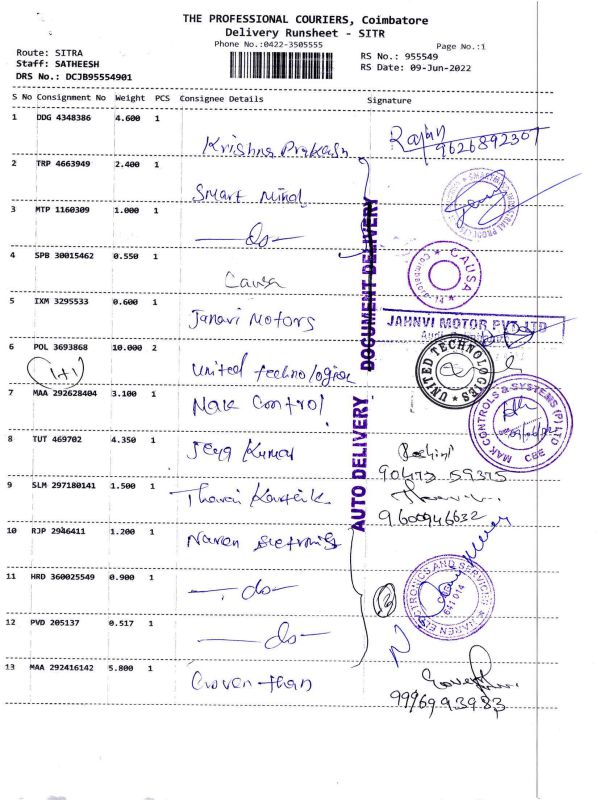 THE PROFESSIONAL COURIERS, Coimbatore
Delivery Runsheet - SITR
Phone No.:0422-3505555
Page No.:1
Route: SITRA
Staff: SATHEESH
DRS No.: DCJB95554901
RS No.: 955549
RS Date: 09-Jun-2022
S No Consignment No Weight PCS Consignee Details Signature
1 DDG 4348386 4.600 1
Krishna Prakash
Rajan
9626892307
2 TRP 4663949 2.400 1
Smart Minol
3 MTP 1160309 1.000 1
—do—
4 SPB 30015462 0.550 1
Causa
CAUSA
5 IXM 3295533 0.600 1
Janavi Motors
JAHNVI MOTOR PVT LTD
6 POL 3693868 10.000 2
(1+1)
United technologies
UNITED TECHNOLOGIES
7 MAA 292628404 3.100 1
Mak Control
MAK CONTROLS & SYSTEMS (P) LTD
CBE
8 TUT 469702 4.350 1
Jeya Kumar
90475 59375
9 SLM 297180141 1.500 1
Tharai Kartik
9600946632
10 RJP 2946411 1.200 1
Naren
11 HRD 360025549 0.900 1
—do—
(3)
NAREN ELECTRONICS AND SERVICES
641 014
12 PVD 205137 0.517 1
—do—
13 MAA 292416142 5.800 1
9996993983
AUTO DELIVERY DOCUMENT DELIVERY